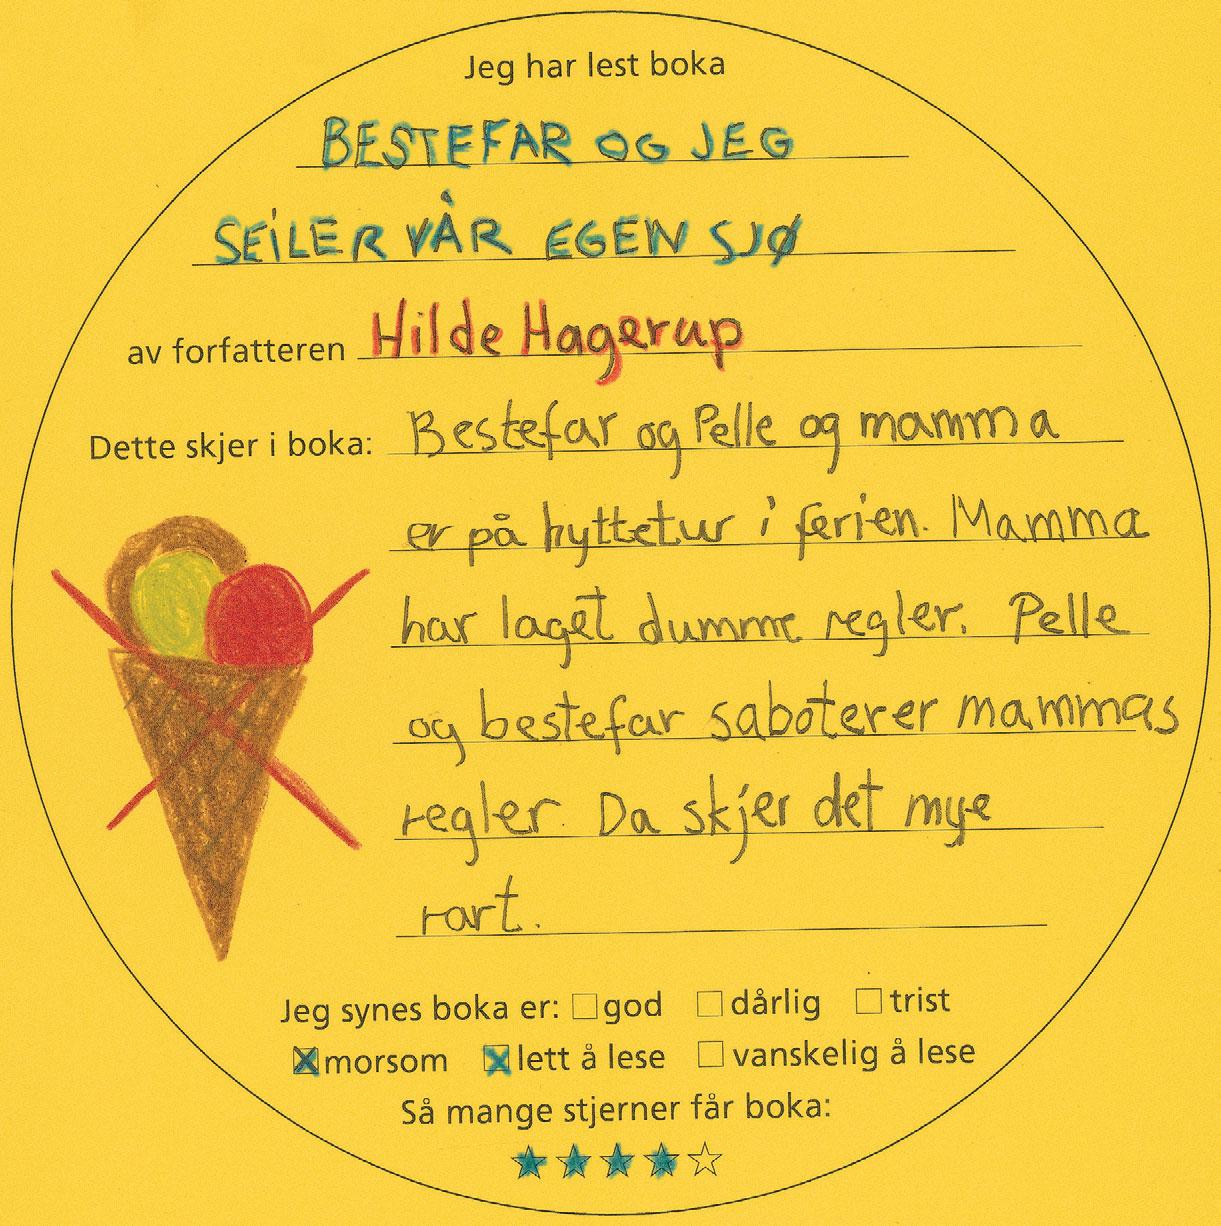 Jeg har lest boka
BESTEFAR OG JEG
SEiLER VÅR EGEN SJØ
av forfatteren Hilde Hagerup
Dette skjer i boka: Bestefar og Pelle og mamma
er på hyttetur i ferien. Mamma
har laget dumme regler. Pelle
og bestefar saboterer mammas
regler. Da skjer det mye
rart.
Jeg synes boka er: god dårlig trist
morsom lett å lese vanskelig å lese
Så mange stjerner får boka: